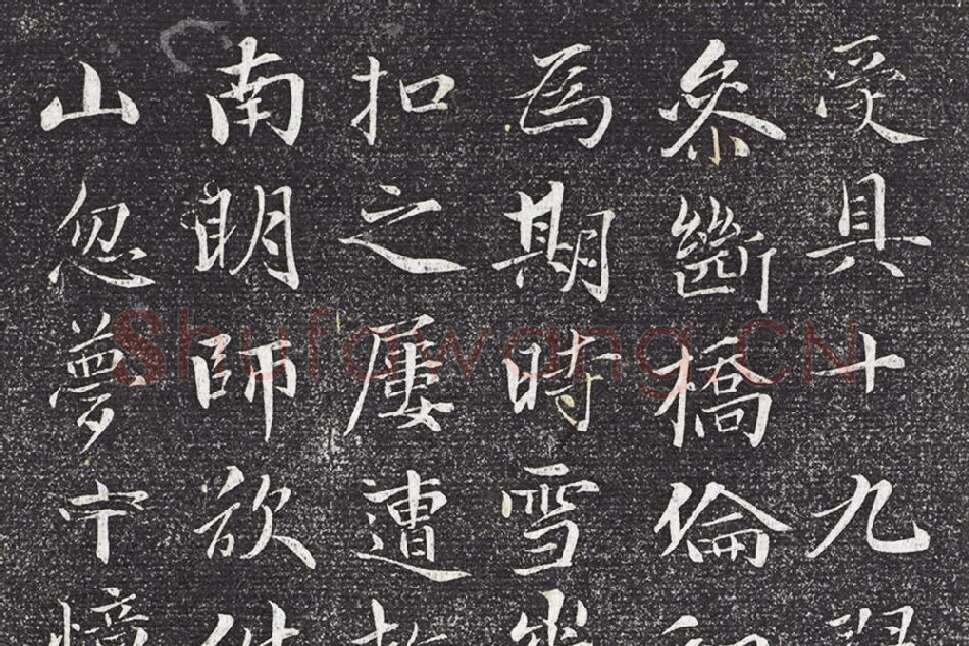 受具十九
參斷橋倫
爲期時雪
扣之屢遭
南明師欲
山忽夢中憶
Shufawang.CN